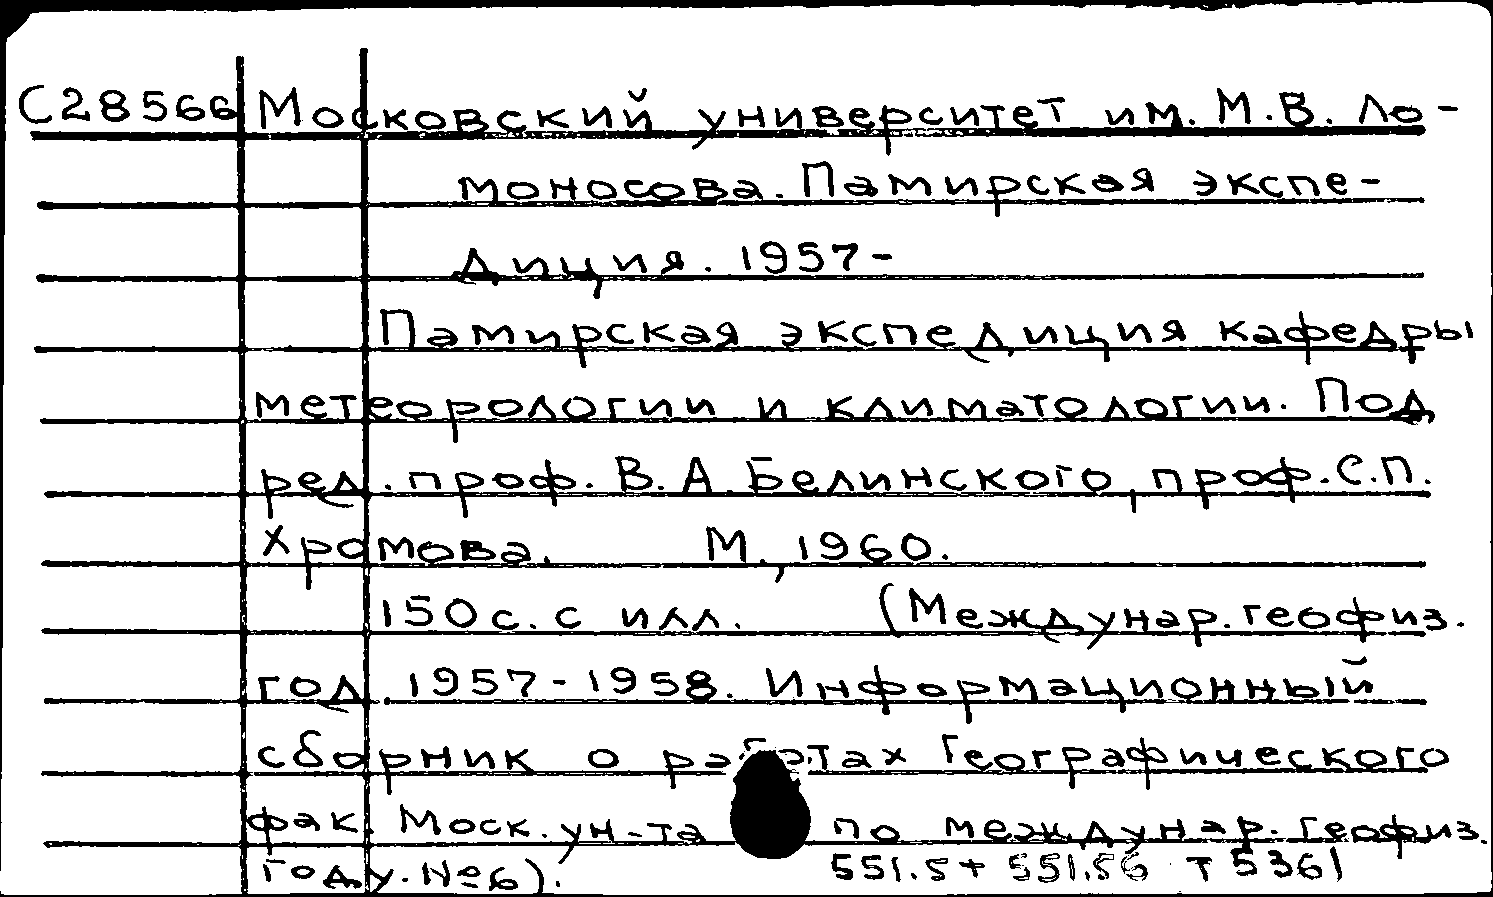 С28566 Московский университет им. М.В. Ло-
моносова. Памирская экспе-
диция. 1957-
Памирская экспедиция кафедры
метеорологии и климатологии. Под
ред. проф. В.А. Белинского, проф. С.П.
Хромова. М., 1960.
150 с. с илл. (Междунар. геофиз.
год. 1957-1958. Информационный
сборник о работах Географического
фак. Моск. ун-та по междунар. геофиз.
году. №6).
551.5+ 551.56 т 5361